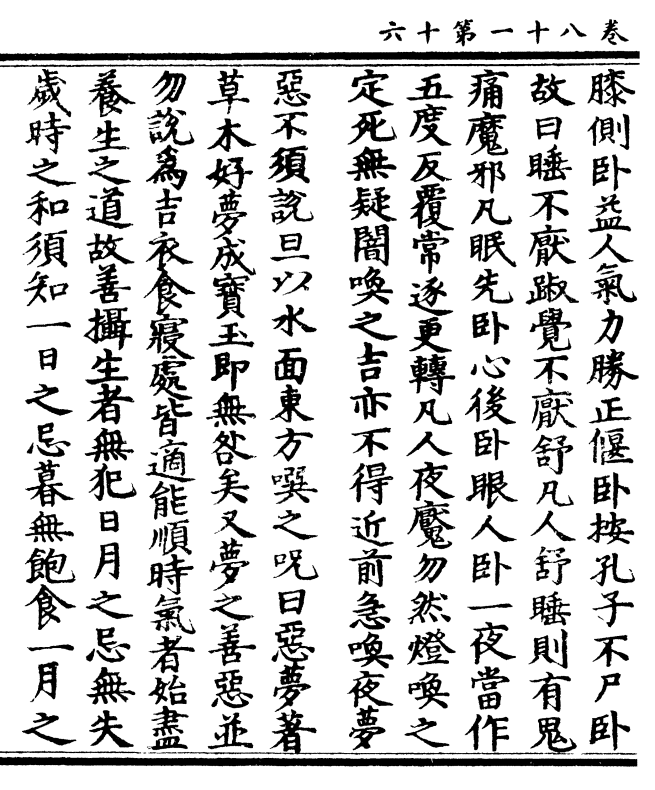 卷八十一第十六
膝側卧益人氣力勝正偃卧按孔子不尸卧
故曰睡不厭踧覺不厭舒凡人舒睡則有鬼
痛魔邪凡眠先卧心後卧眼人卧一夜當作
五度反覆常逐更轉凡人夜魘勿然燈喚之
定死無疑闇喚之吉亦不得近前急喚夜夢
惡不須說旦以水面東方噀之呪曰惡夢著
草木好夢成寶玉即無咎矣又夢之善惡並
勿說為吉衣食寢處皆適能順時氣者始盡
養生之道故善攝生者無犯日月之忌無失
歲時之和須知一日之忌暮無飽食一月之